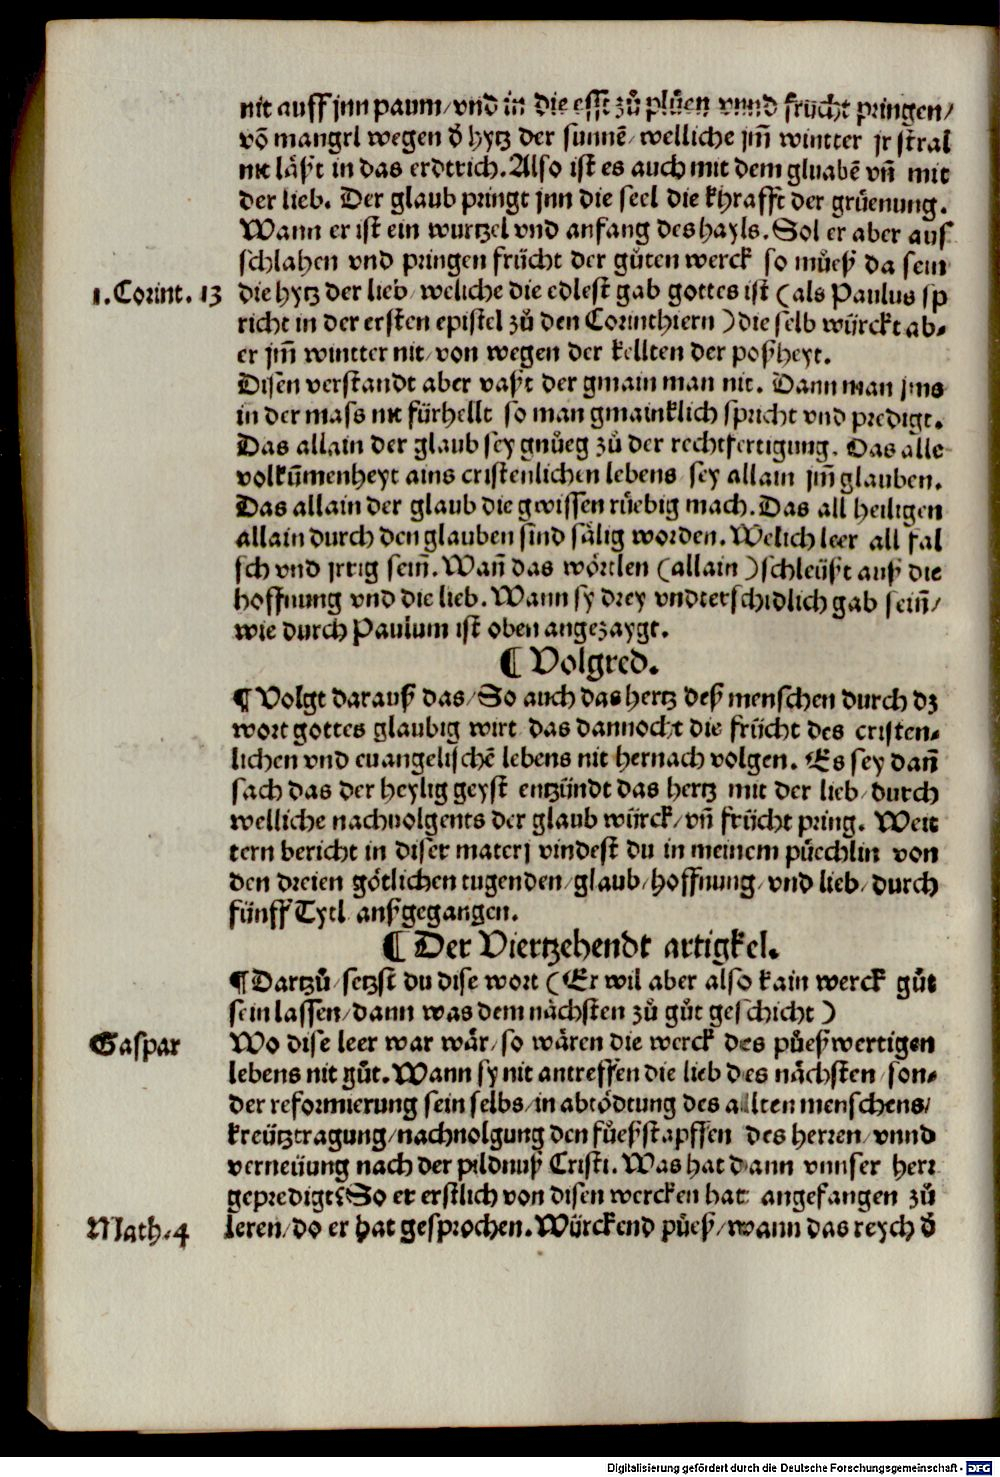 nit auff jnn paum/vnd in die esst zů plůen vnnd frücht pringen/
võ mangel wegen d̕ hytz der sunnẽ/welliche jm̃ wintter jr stral
nit läßt in das erdtrich. Also ist es auch mit dem gluabẽ vñ mit
der lieb. Der glaub pringt jnn die seel die khrafft der grüenung.
Wann er ist ein wurtzel vnd anfang des hayls. Sol er aber auf
schlahen vnd pringen frücht der gůten werck so můeß da sein
1. Corint. 13 die hytz der lieb/weliche die edlest gab gottes ist (als Paulus sp
richt in der ersten epistel zů den Corinthiern) die selb würckt ab⸗
er jm̃ wintter nit/von wegen der kellten der poßheyt.
Disen verstandt aber vaßt der gmain man nit. Dann man jms
in der mass nit fürhellt so man gmainklich spricht vnd predigt.
Das allain der glaub sey gnůeg zů der rechtfertigung. Das alle
volkũmenheyt ains cristenlichen lebens sey allain jm̃ glauben.
Das allain der glaub die gwissen rüebig mach. Das all heiligen
allain durch den glauben sind sälig worden. Welich leer all fal
sch vnd jrrig sein̄. Wañ das wörtlen (allain) schleüßt auß die
hoffnung vnd die lieb. Wann sy drey vndterschidlich gab sein̄/
wie durch Paulum ist oben angezaygt.
¶ Volgred.
¶ Volgt darauß das/So auch das hertz deß menschen durch dz
wort gottes glaubig wirt das dannocht die frücht des cristen⸗
lichen vnd euangelischẽ lebens nit hernach volgen. Es sey dañ
sach das der heylig geyst entzündt das hertz mit der lieb/durch
welliche nachuolgents der glaub würck/vñ frücht pring. Weit
tern bericht in diser materj vindest du in meinem püechlin von
den dreien götlichen tugenden/glaub/hoffnung/vnd lieb/durch
fünff Tytl außgegangen.
¶ Der Viertzehendt artigkel.
¶ Dartzů/setzst du dise wort (Er wil aber also kain werck gůt
sein lassen/dann was dem nächsten zů gůt geschicht)
Gaspar Wo dise leer war wär/so wären die werck des půeßwertigen
lebens nit gůt. Wann sy nit antreffen die lieb des nächsten/son⸗
der reformierung sein selbs/in abtödtung des allten menschens/
kreütztragung/nachuolgung den fůeßstapffen des herren/vnnd
verneüung nach der pildnuß Cristi. Was hat dann vnnser herr
gepredigt? So er erstlich von disen wercken hat angefangen zů
Math. 4 leren/do er hat gesprochen. Würckend půeß/wann das reych d̕
Digitalisierung gefördert durch die Deutsche Forschungsgemeinschaft - DFG